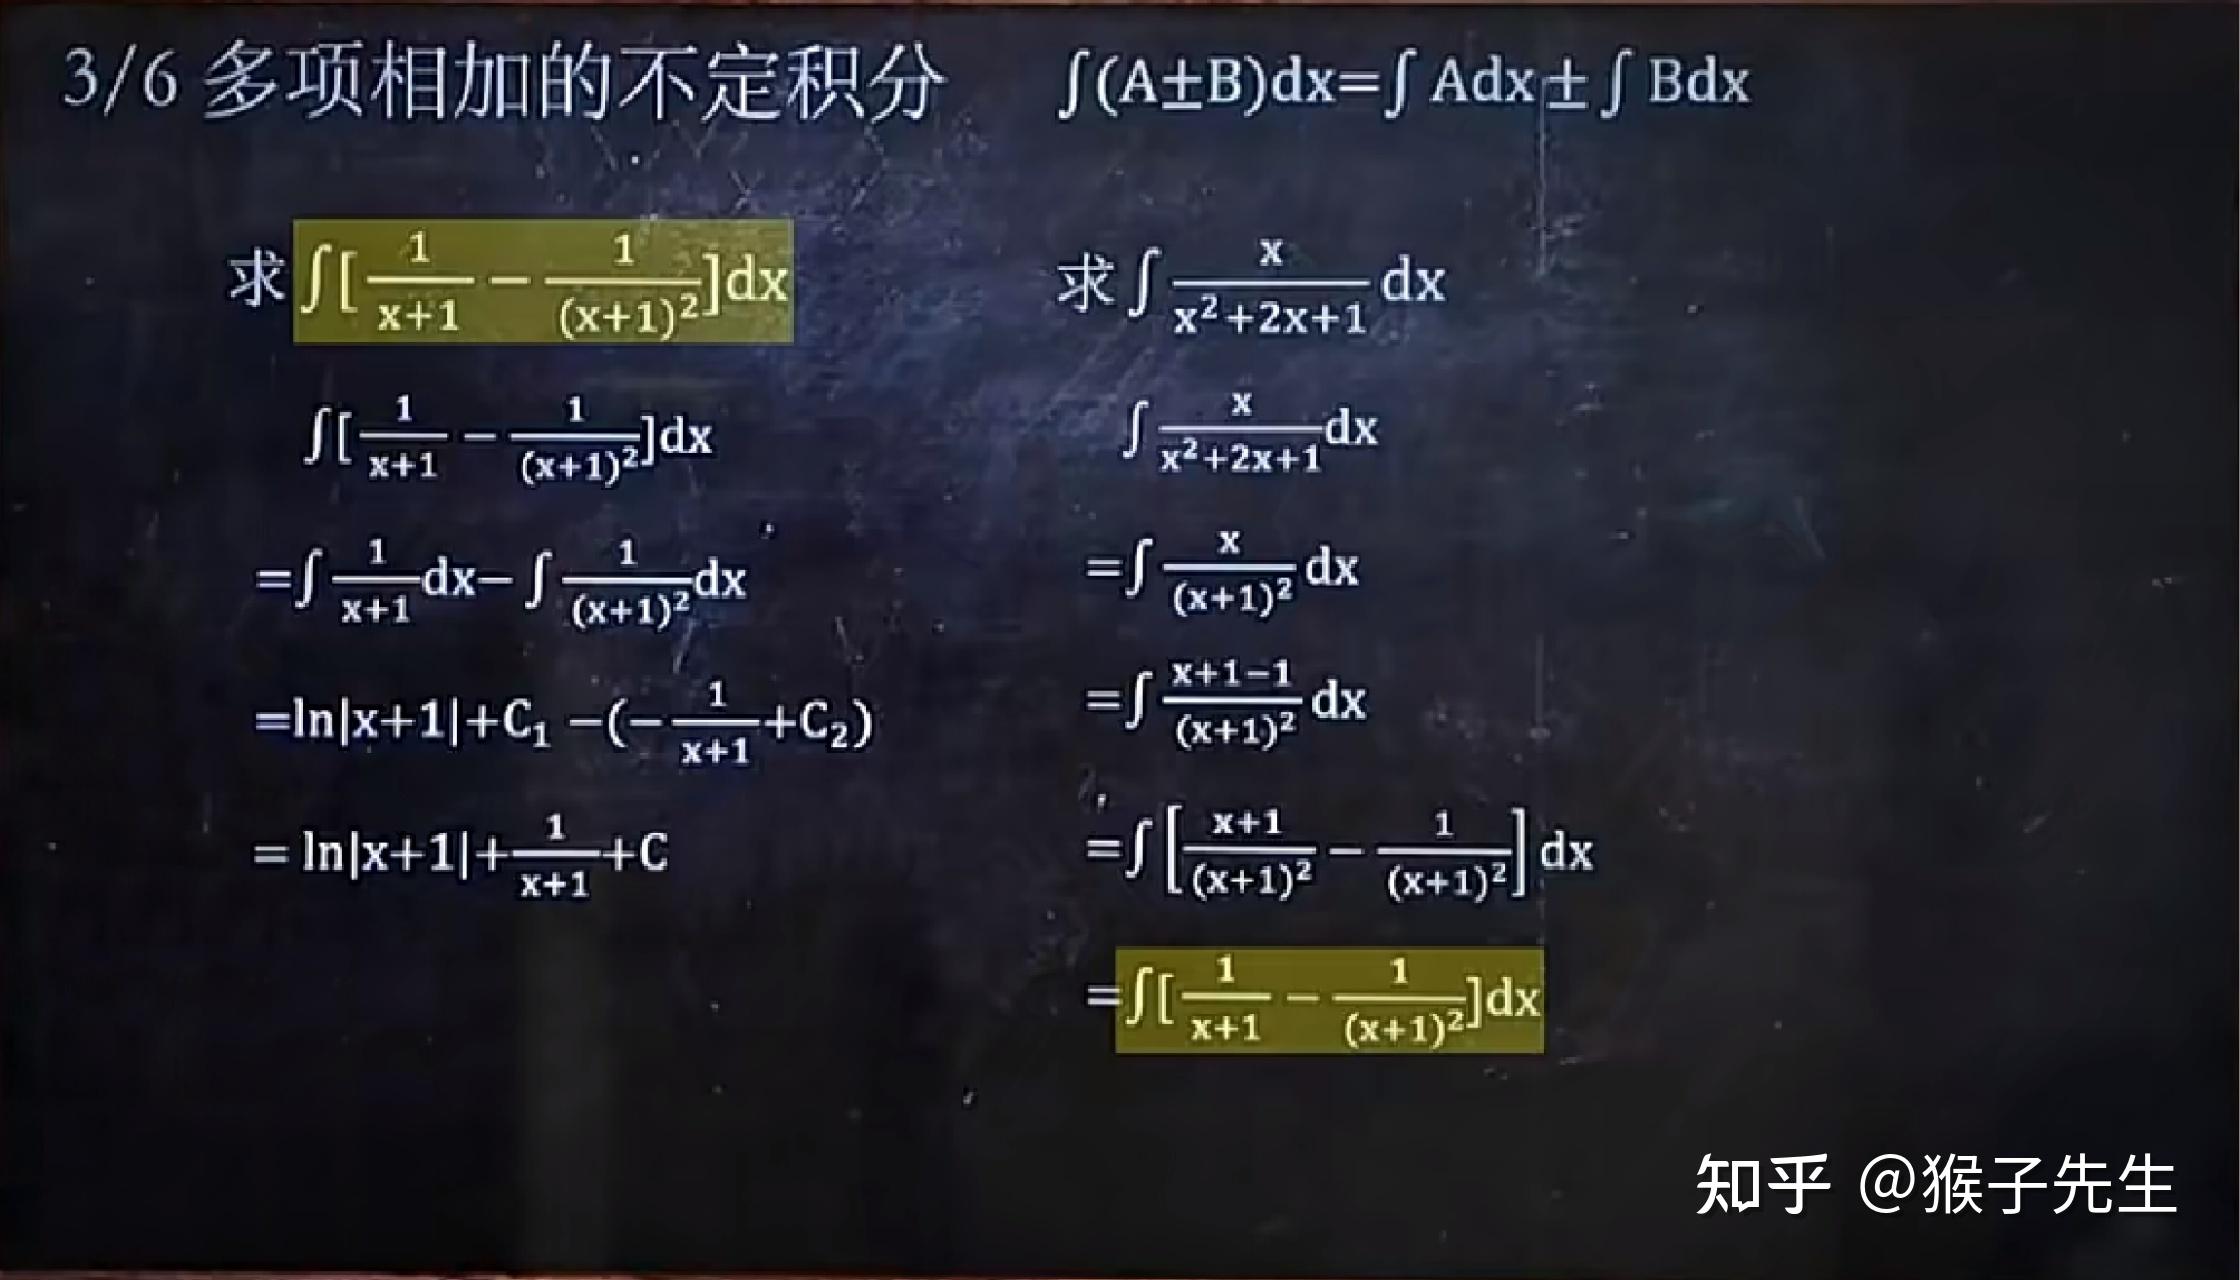 3/6 多项相加的不定积分
∫(A±B)dx=∫Adx±∫Bdx
求∫[1/(x+1) − 1/(x+1)²]dx
∫[1/(x+1) − 1/(x+1)²]dx
=∫1/(x+1)dx−∫1/(x+1)²dx
=ln|x+1|+C₁−(−1/(x+1)+C₂)
= ln|x+1|+1/(x+1)+C
求∫x/(x²+2x+1)dx
∫x/(x²+2x+1)dx
=∫x/(x+1)²dx
=∫(x+1−1)/(x+1)²dx
=∫[(x+1)/(x+1)² − 1/(x+1)²]dx
=∫[1/(x+1) − 1/(x+1)²]dx
知乎 @猴子先生